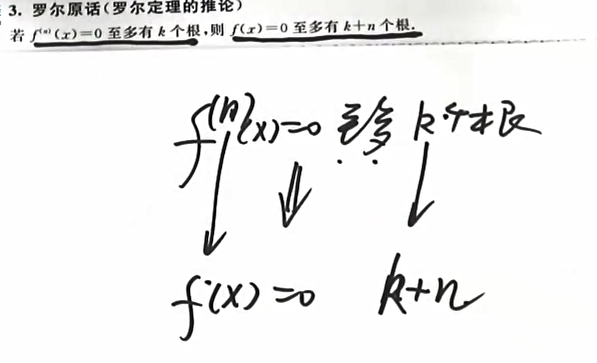 3. 罗尔原话(罗尔定理的推论)
若 f⁽ⁿ⁾(x)=0 至多有 k 个根,则 f(x)=0 至多有 k+n 个根.
f⁽ⁿ⁾(x)=0 至多 k个根
f(x)=0 k+n